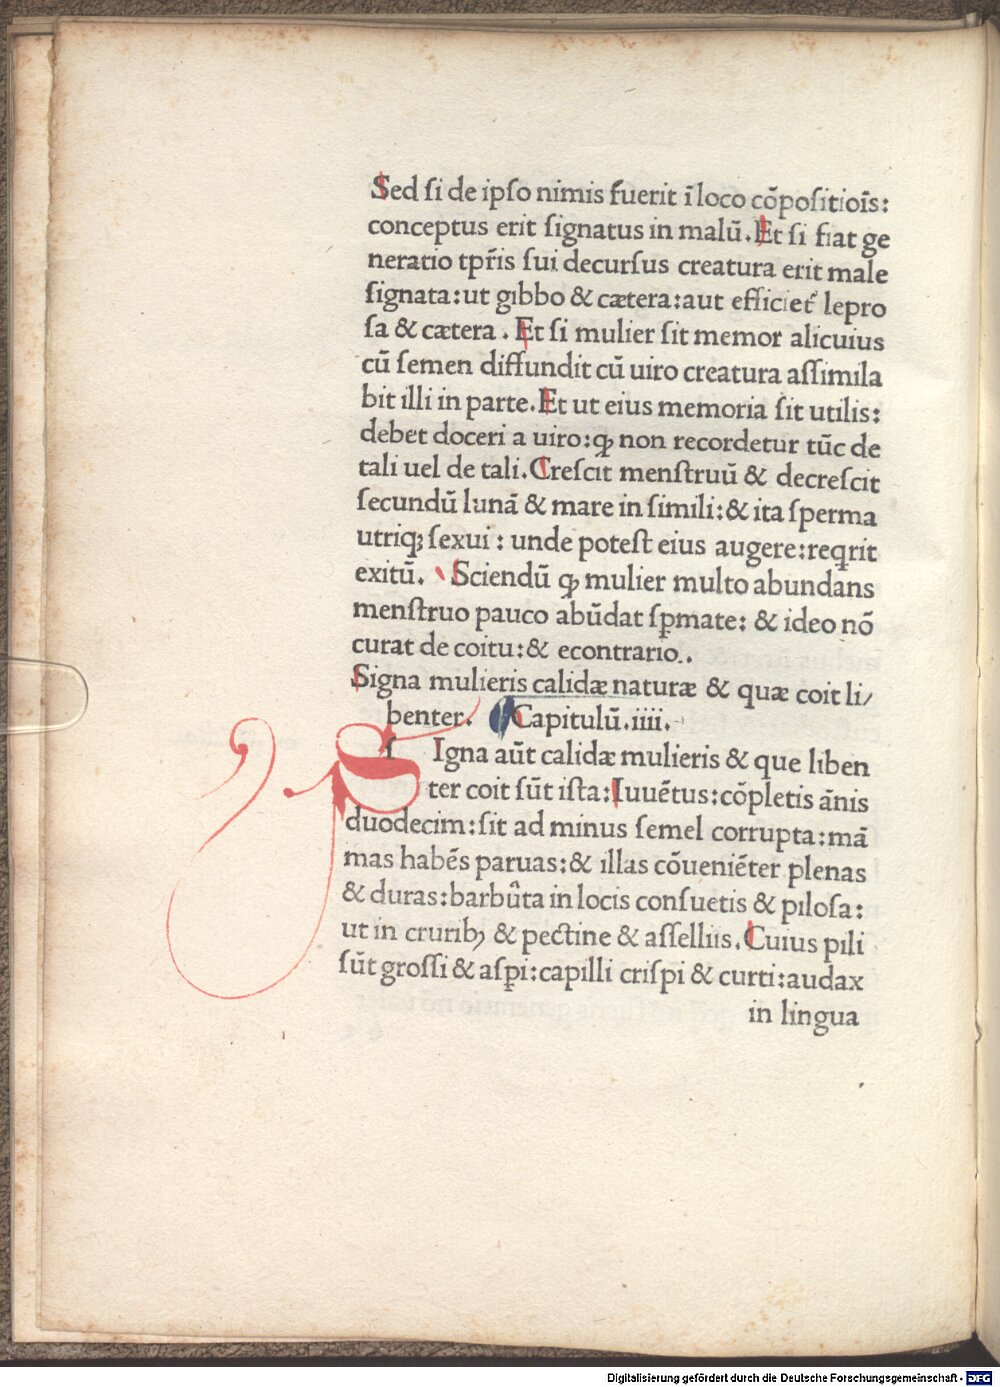 Sed ſi de ipſo nimis fuerit ī loco cōpoſitioīs:
conceptus erit ſignatus in malū. Et ſi fiat ge
neratio tp̄ris ſui decurſus creatura erit male
ſignata: ut gibbo & cætera: aut efficiet̃ lepro
ſa & cætera. Et ſi mulier ſit memor alicuius
cū ſemen diffundit cū uiro creatura aſſimila
bit illi in parte. Et ut eius memoria ſit utilis:
debet doceri a uiro: ꝙ non recordetur tūc de
tali uel de tali. Creſcit menſtruū & decreſcit
ſecundū lunā & mare in ſimili: & ita ſperma
utriqꝫ ſexui: unde poteſt eius augere: reqͥrit
exitū. Sciendū ꝙ mulier multo abundans
menſtruo pauco abūdat ſꝑmate: & ideo nō
curat de coitu: & econtrario..
Signa mulieris calidæ naturæ & quæ coit li/
benter. Capitulū.iiii.
ſ Igna aūt calidæ mulieris & que liben
ter coit ſūt iſta: Iuuētus: cōpletis ānis
duodecim: ſit ad minus ſemel corrupta: mā
mas habēs paruas: & illas cōueniēter plenas
& duras: barbūta in locis conſuetis & piloſa:
ut in cruribꝫ & pectine & aſſelliis. Cuius pili
ſūt groſſi & aſꝑi: capilli criſpi & curti: audax
in lingua
Digitalisierung gefördert durch die Deutsche Forschungsgemeinschaft - DFG